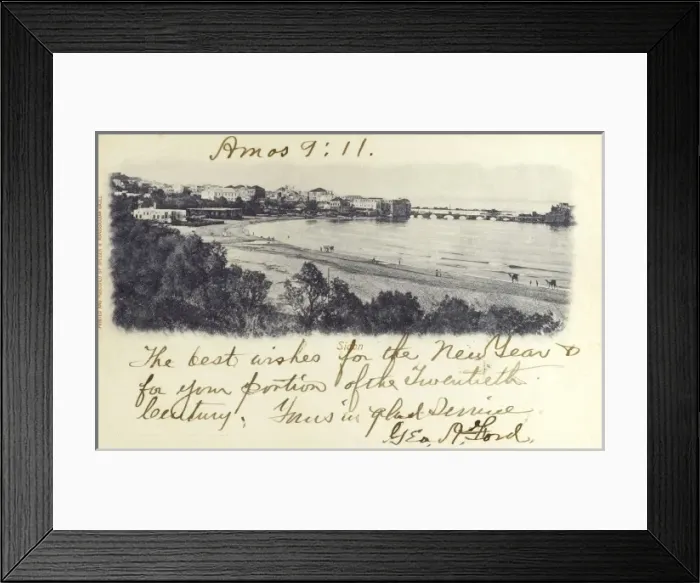 Amos 9:11.
Sidon
The best wishes for the New Year &
for your portion of the Twentieth
Century. Yours in glad Service
Geo. A. Ford.